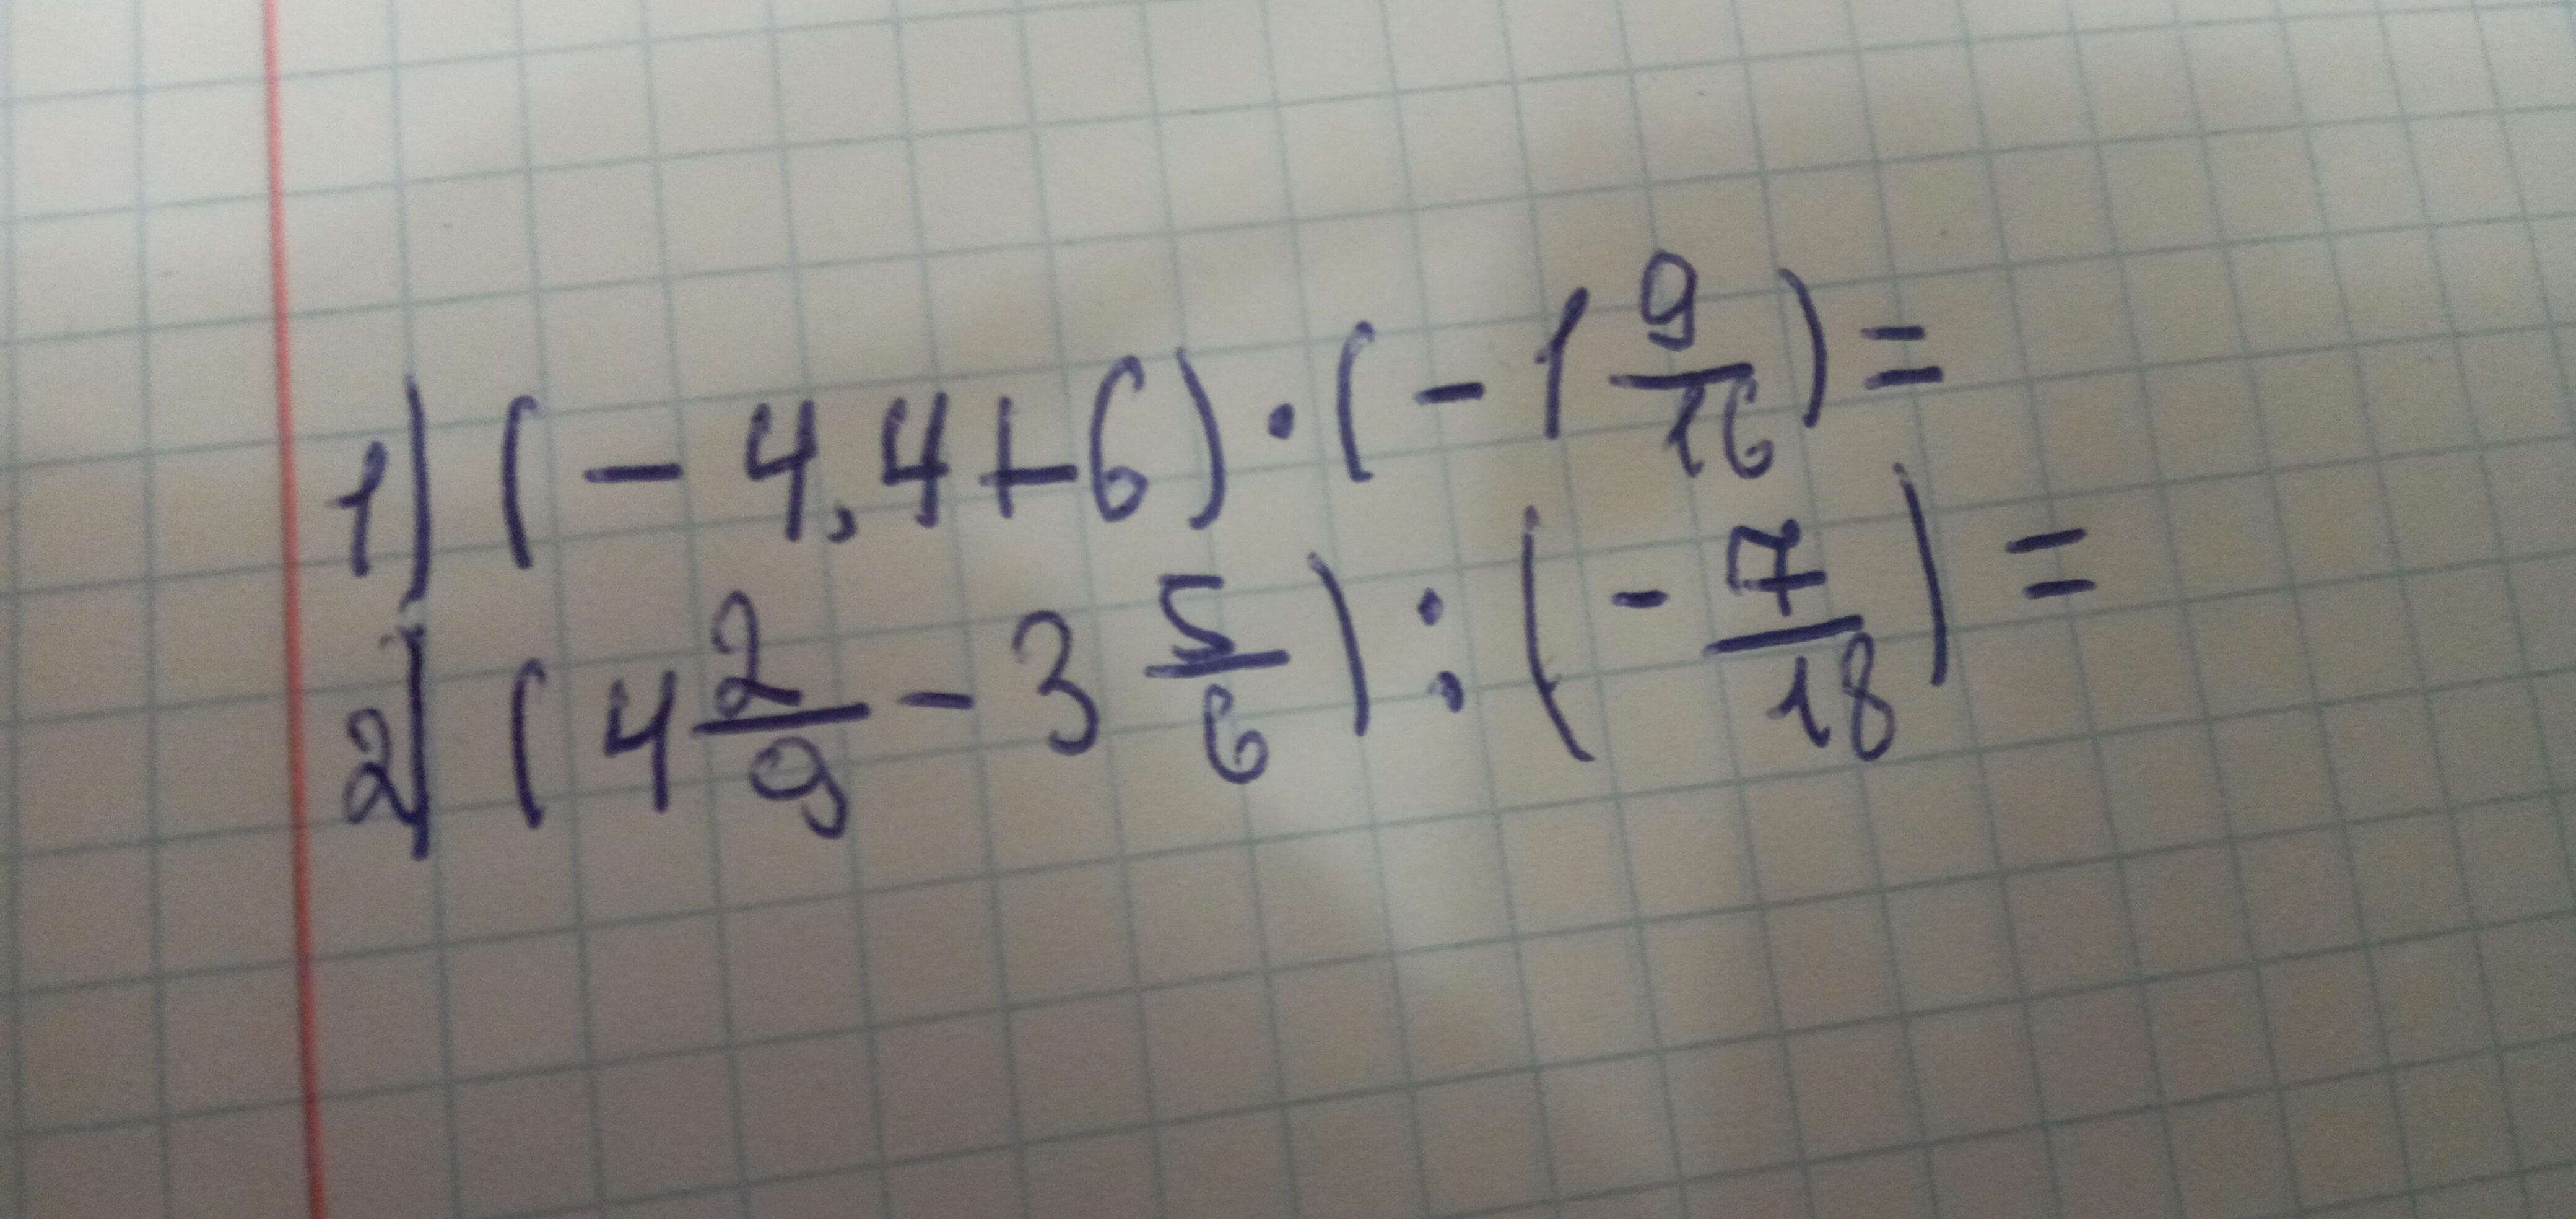 1) (-4,4+6)·(-1 9/16)=
2) (4 2/9 - 3 5/6) : (-7/18) =